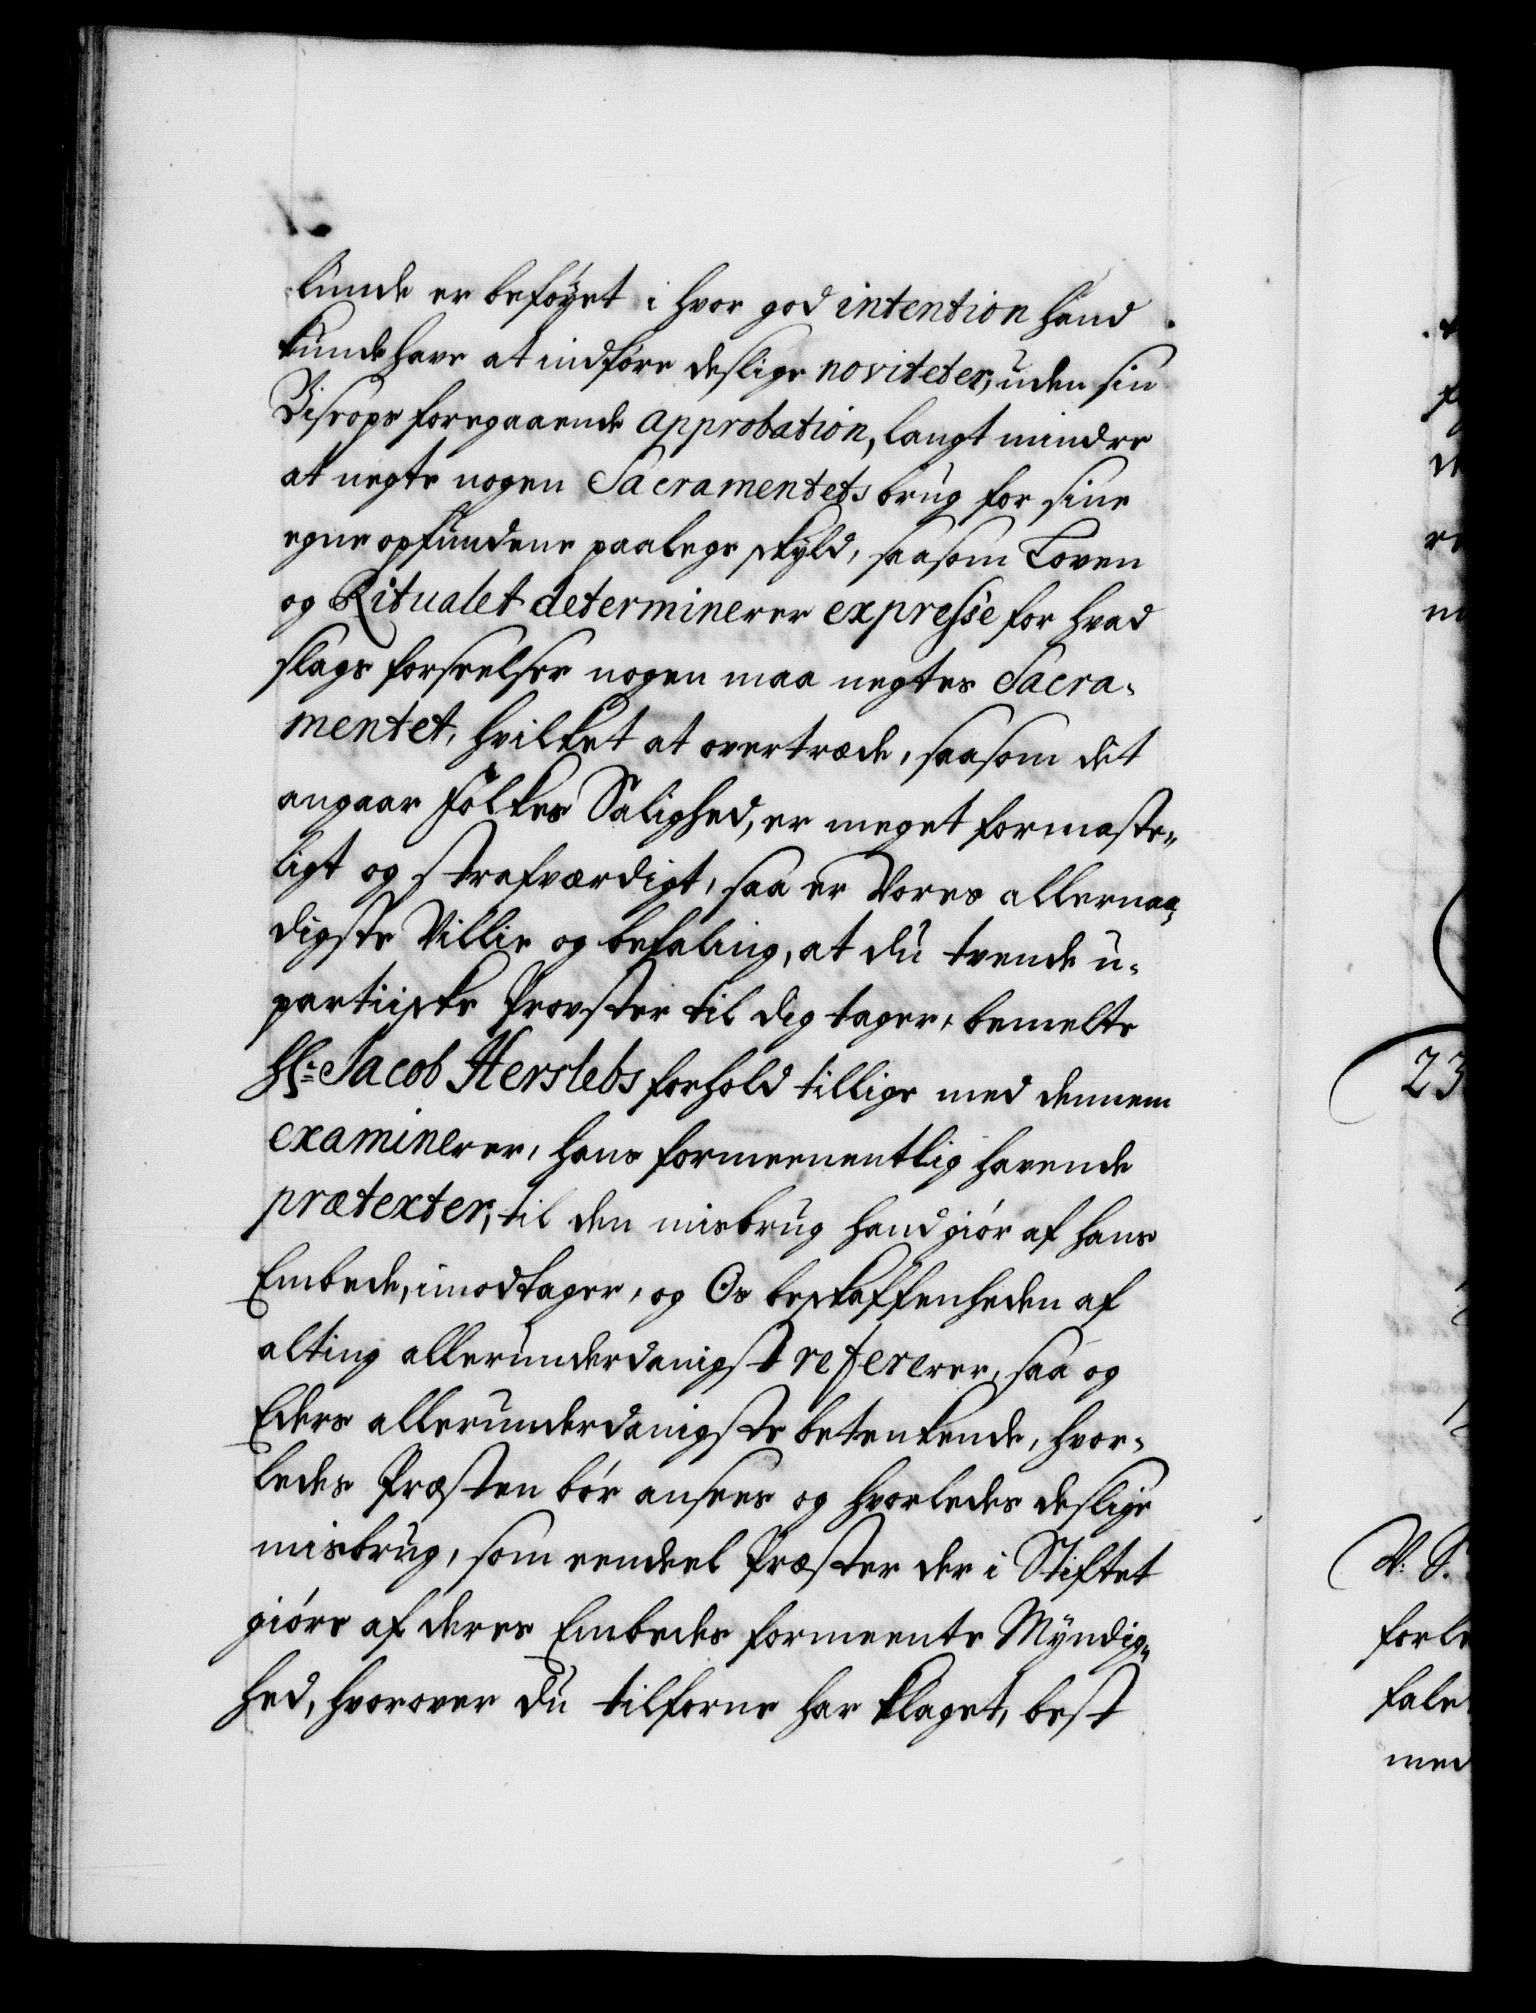 lunde er beføyet i hvor god intention hand
kunde have at indføre deslige noviteter, uden sin
Biscops foregaaende approbation, langt mindre
at negte nogen Sacramentets brug for sine
egne opfundene paalegs skyld, saasom Loven
og Ritualet determinerer expresse for hvad
slags forseelser nogen maa negtes Sacra-
mentet, hvilket at overtræde, saasom det
angaar Folkes Salighed, er meget formaste-
ligt og strafværdigt, saa er Vores allernaa-
digste Villie og befaling, at du tvende u-
partiiske Provster til dig tager, bemelte
Hr: Jacob Herslebs forhold tillige med dennem
examinerer, hans formeenentlig havende
prætexter, til den misbrug hand giør af hans
Embede, imodtager, og Os beskaffenheden af
alting allerunderdanigst refererer, saa og
Eders allerunderdanigste betenkende, hvor-
ledes Præsten bør ansees og hvorledes deslige
misbrug, som eendeel Præster der i Stiftet
giøre af deres Embedes formeente Myndig-
hed, hvorover du tilforne har klaget, best
23
V. S.
forle
fale
med